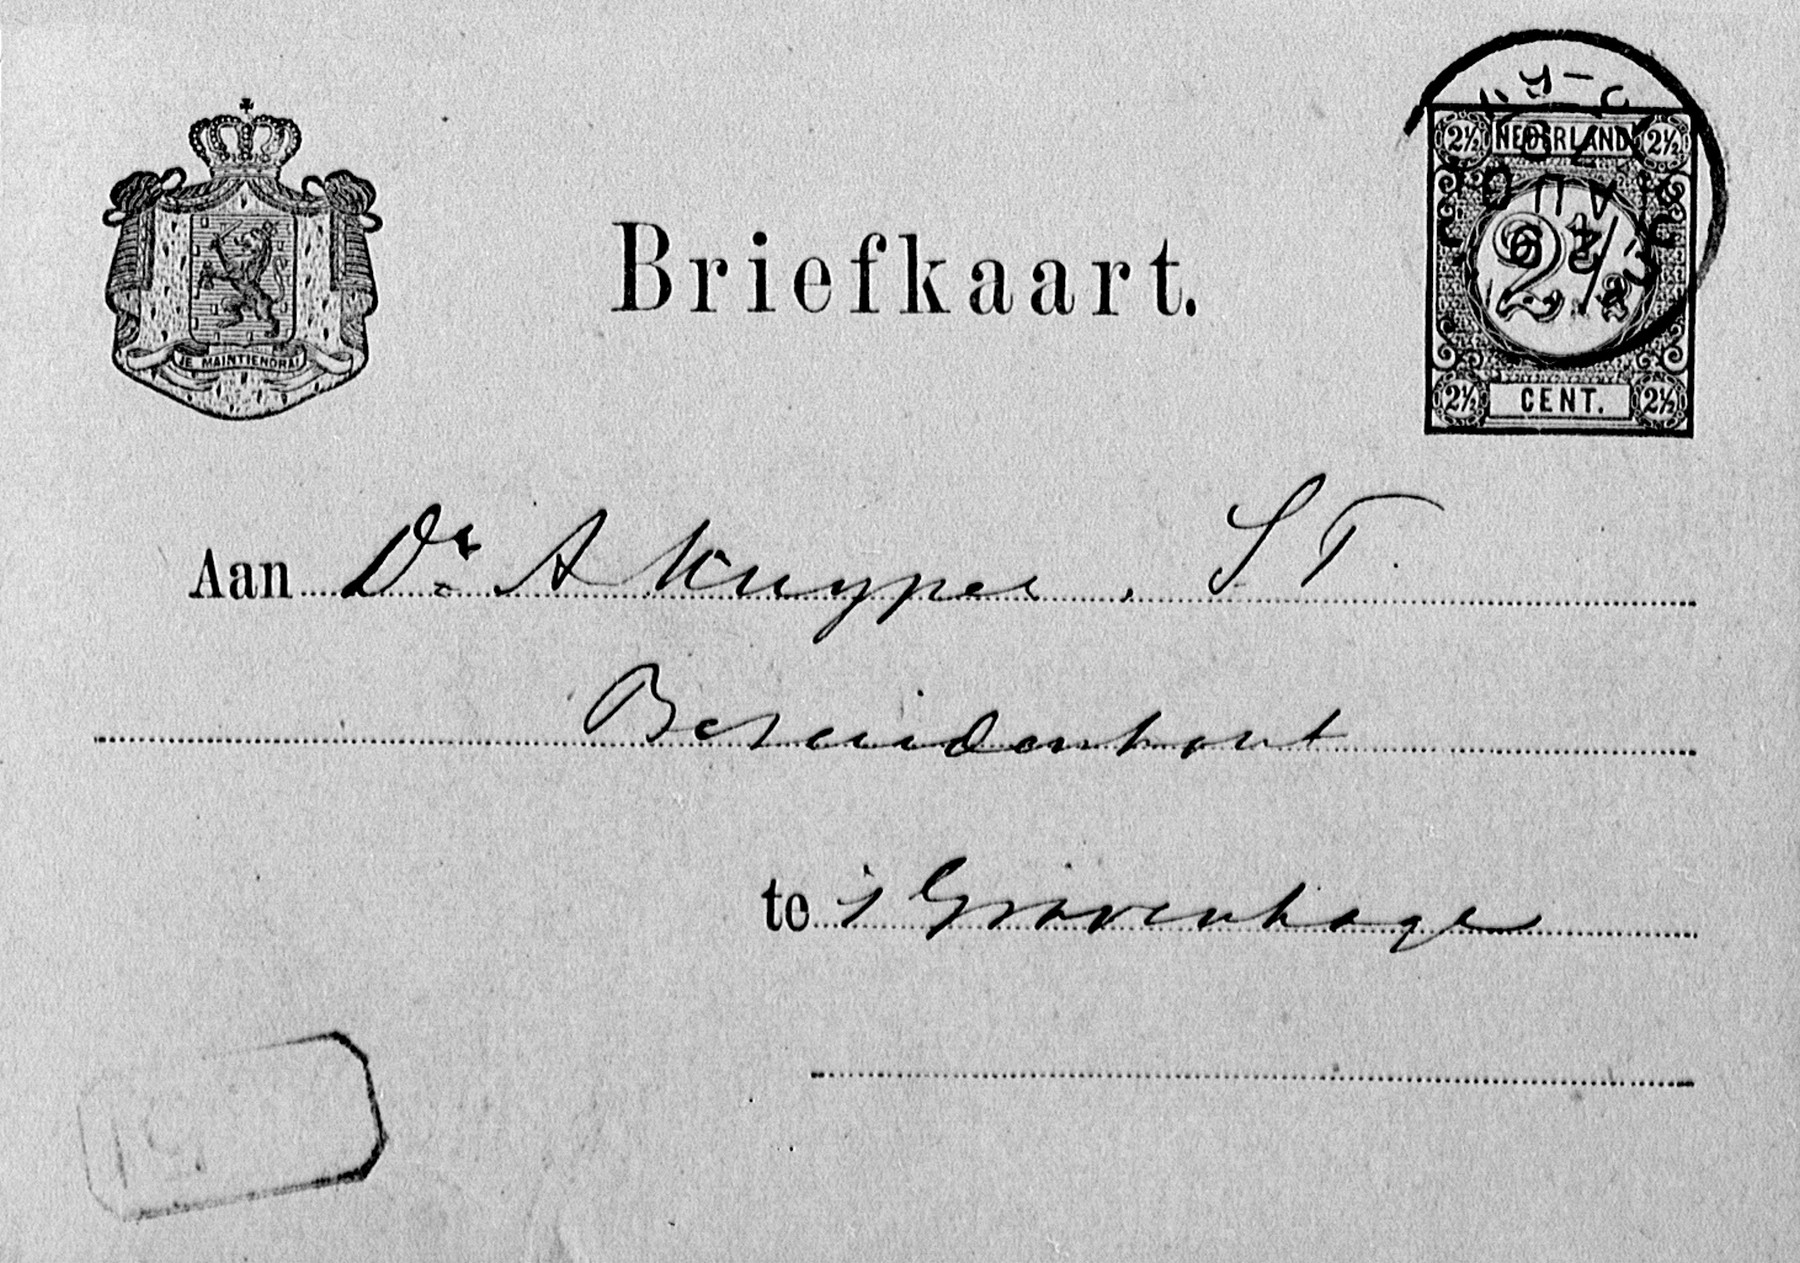 2½ NEDERLAND 2½
Briefkaart.
2½
JE MAINTIENDRAI
2½ CENT. 2½
Aan Dr. A Kuyper, S T.
Bezuidenhout
te 's Gravenhage